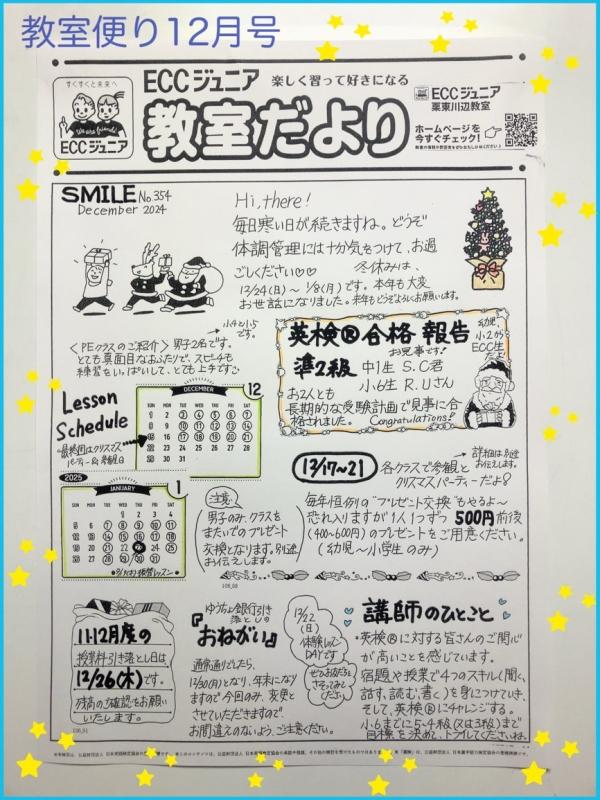 教室便り12月号
すくすくと未来へ
We are friends!
ECCジュニア
ECCジュニア 楽しく習って好きになる
教室だより
ECCジュニア
栗東川辺教室
ホームページを
今すぐチェック!
SMILE No.354
December 2024
Hi, there!
毎日寒い日が続きますね。どうぞ
体調管理には十分気をつけて、お過
ごしください♡♡ 冬休みは、
12/24(日)〜1/8(月)です。本年も大変
お世話になりました。来年もどうぞよろしくお願います。
小4と小5
です。
〈PEクラスのご紹介〉男子2名です。
とても真面目なおふたりで、スピーチも
練習をいっぱいして、とても上手です
英検® 合格 報告
お見事です!
幼児、
小2から
ECC生
準2級 中1生 S.C君
小6生 R.Uさん
お2人とも
長期的な受験計画で見事に合
格されました。 Congratulations!
Lesson
Schedule
最終回はクリスマス
パーティー&参観日
DECEMBER
12
SUN MON TUE WED THU FRI SAT
1 2 3 4 5 6 7
8 9 10 11 12 13 14
15 16 17 18 19 20 21
22 23 24 25 26 27 28
29 30 31
2025
JANUARY
1
SUN MON TUE WED THU FRI SAT
1 2 3 4
5 6 7 8 9 10 11
12 13 14 15 16 17 18
19 20 21 22 23 24 25
26 27 28 29 30 31
12/17〜21 各クラスで参観と
クリスマスパーティーだよ
詳細は別途
お伝えします。
注意!
男子のみ、クラスを
またいでのプレゼント
交換となります。別途
お伝えします。
毎年恒例の"プレゼント交換"もやるよ〜
恐れ入りますが1人1つずつ 500円前後
(400〜600円)のプレゼントをご用意ください。
(幼児〜小学生のみ)
11・12月度の
授業料引き落とし日は、
12/26(木)です。
残高のご確認をお願い
いたします。
ゆうちょ銀行引き
落としの
『おねがい』
通常通りでしたら、
12/30(月)となり、年末になり
ますので今回のみ、変更と
させていただきますので
お間違えのないよう、ご注意ください。
12/22
(日)
体験レッスン
DAYです
ぜひお友だちを
さそってみて
ください
講師のひとこと
・英検®に対する皆さんのご関心
が高いことを感じています。
宿題や授業で4つのスキル(聞く、
話す、読む、書く)を身につけていき、
そして、英検®にチャレンジする。
小6までに5・4級(又は3級)まで
目標を決めて、トライしてくださいね。